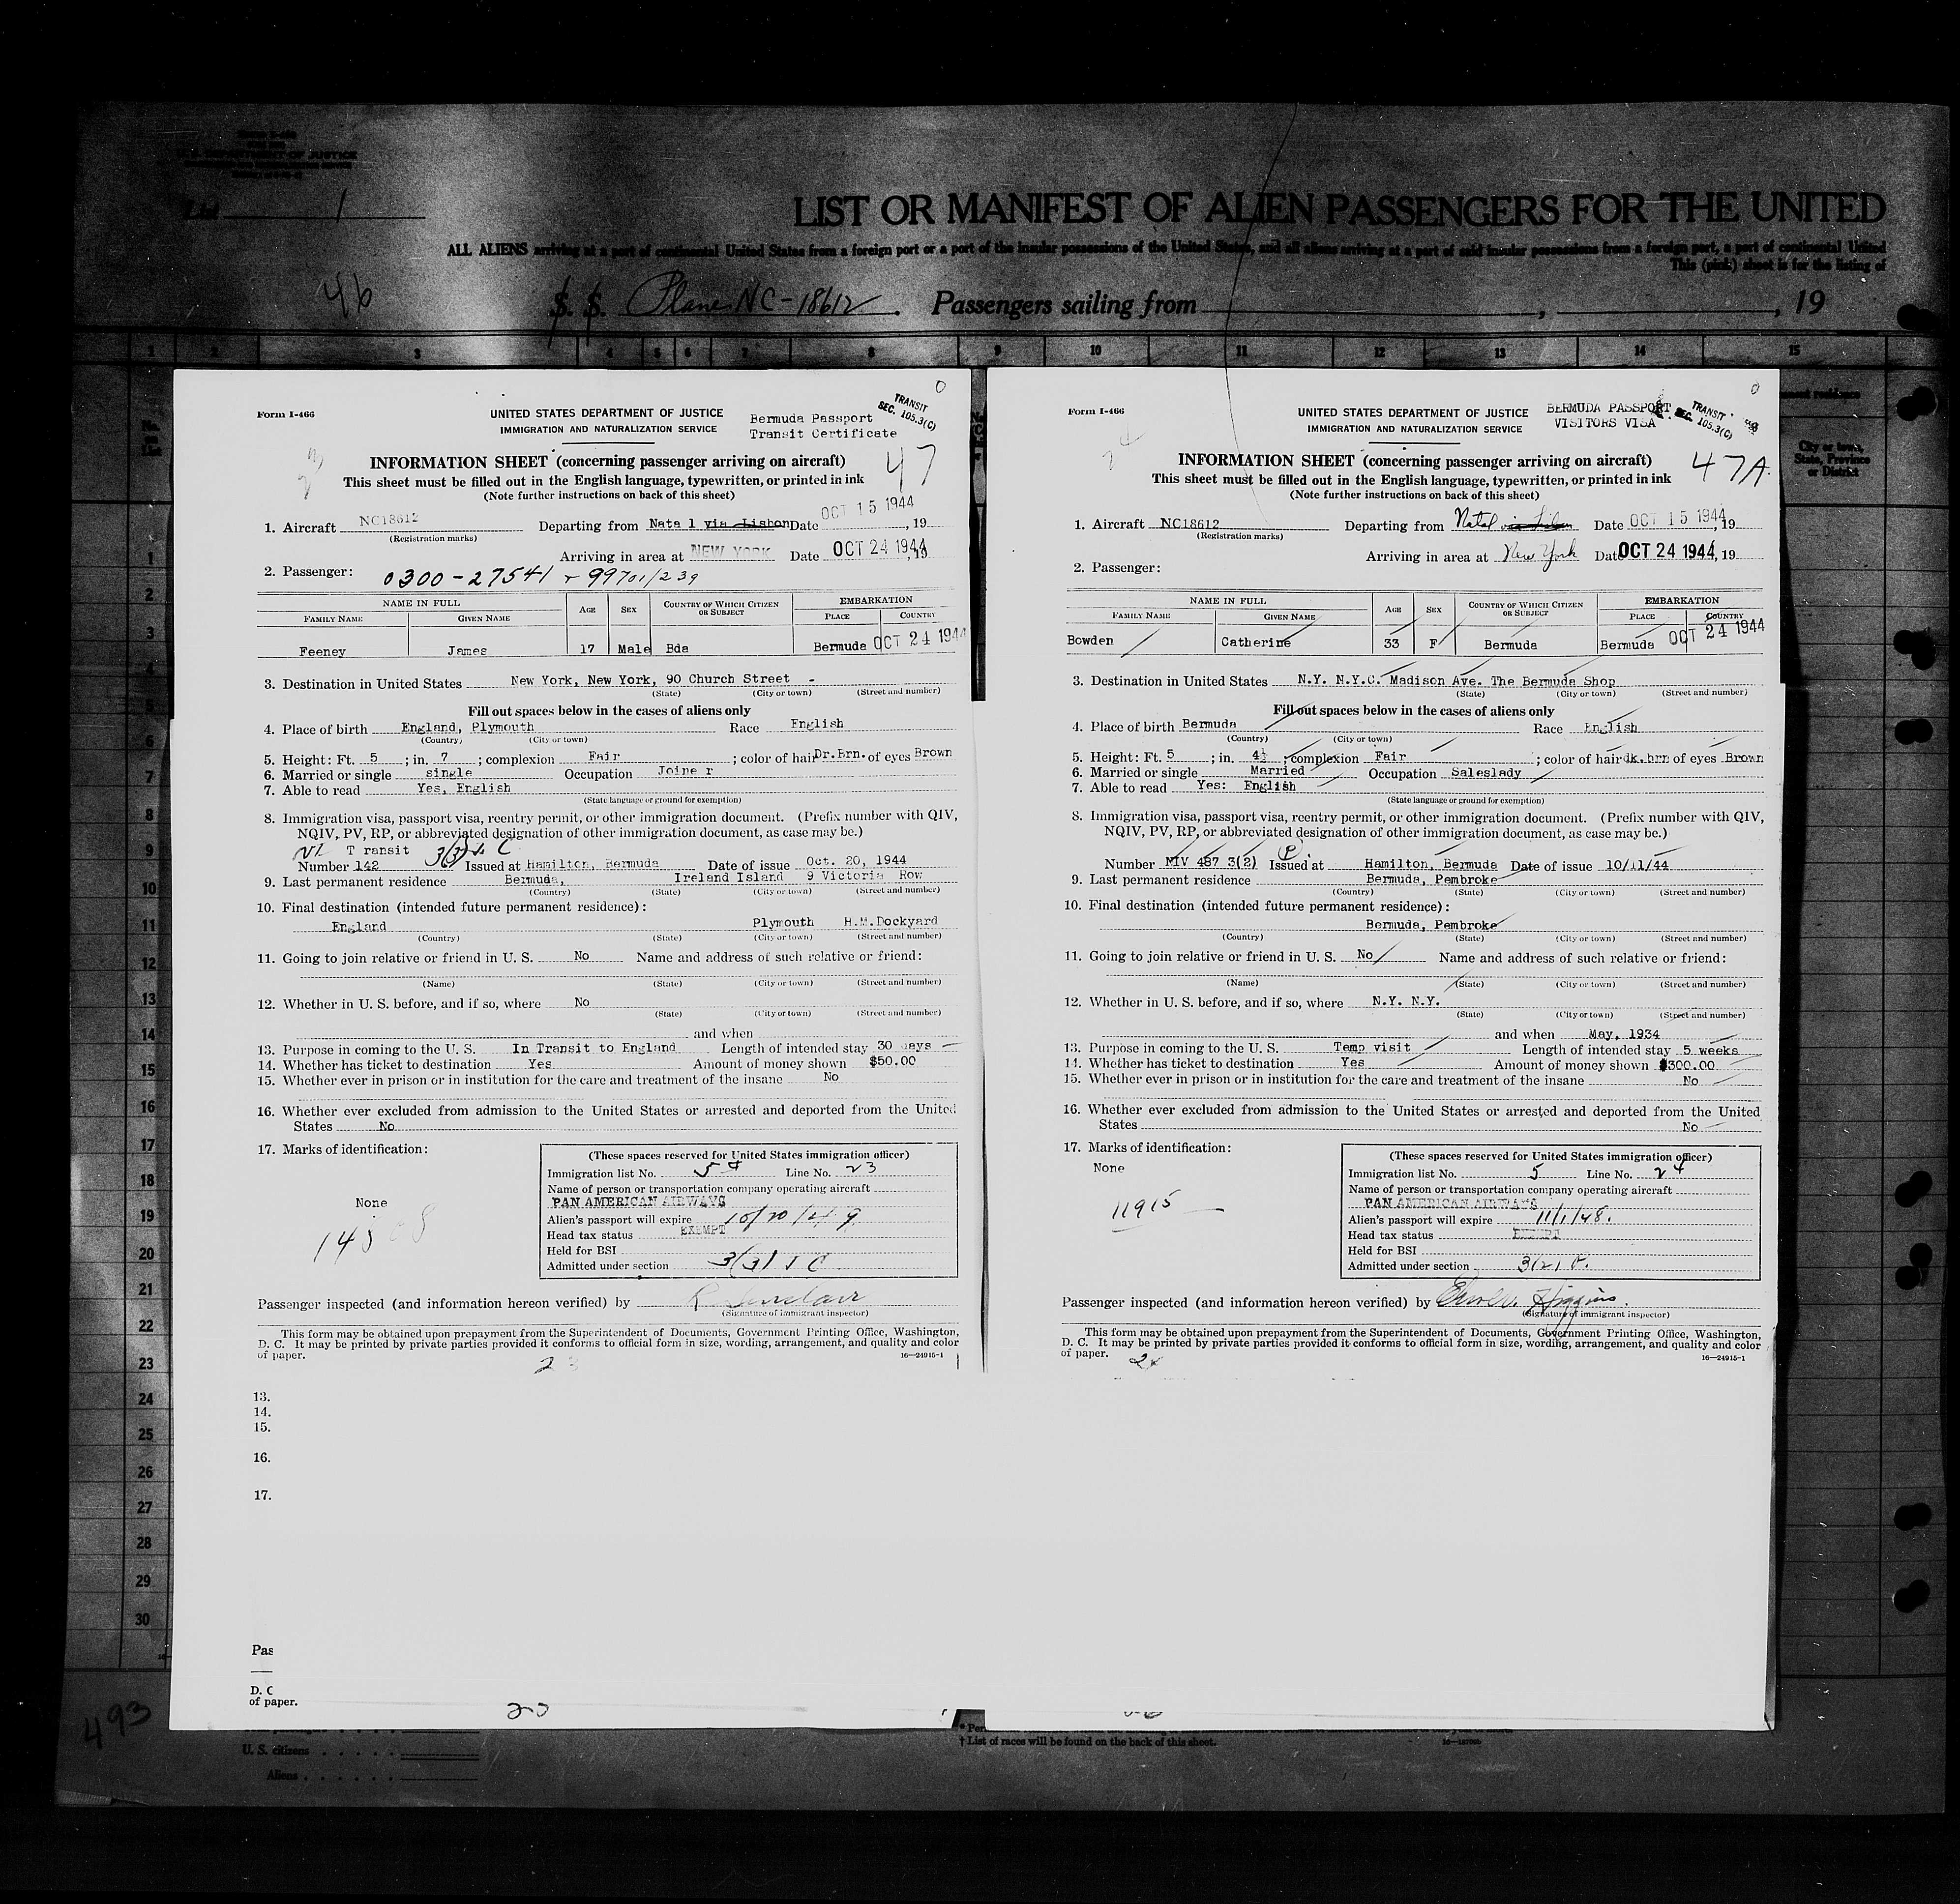 U.S. DEPARTMENT OF JUSTICE
List 1
LIST OR MANIFEST OF ALIEN PASSENGERS FOR THE UNITED
ALL ALIENS arriving at a port of continental United States from a foreign port or a port of the insular possessions of the United States, and all aliens arriving at a port of said insular possessions from a foreign port, a port of continental United
This (pink) sheet is for the listing of
46
S. S. Plane NC-18612. Passengers sailing from , , 19
1 2 3 4 5 6 7 8 9 10 11 12 13 14 15
Form I-466
UNITED STATES DEPARTMENT OF JUSTICE
IMMIGRATION AND NATURALIZATION SERVICE
Bermuda Passport
Transit Certificate
TRANSIT
SEC. 105.3(C)
0
47
INFORMATION SHEET (concerning passenger arriving on aircraft)
This sheet must be filled out in the English language, typewritten, or printed in ink
(Note further instructions on back of this sheet)
1. Aircraft NC18612 Departing from Nata l via Lisbon Date OCT 15 1944, 19
(Registration marks)
Arriving in area at NEW YORK Date OCT 24 1944, 19
2. Passenger: 0300-27541 + 99701/239
NAME IN FULL AGE SEX COUNTRY OF WHICH CITIZEN OR SUBJECT EMBARKATION
FAMILY NAME GIVEN NAME PLACE COUNTRY
Feeney James 17 Male Bda Bermuda OCT 24 1944
3. Destination in United States New York, New York, 90 Church Street -
(State) (City or town) (Street and number)
Fill out spaces below in the cases of aliens only
4. Place of birth England, Plymouth Race English
(Country) (City or town)
5. Height: Ft. 5 ; in. 7 ; complexion Fair ; color of hair Dr.Brn. of eyes Brown
6. Married or single single Occupation Joine r
7. Able to read Yes, English
(State language or ground for exemption)
8. Immigration visa, passport visa, reentry permit, or other immigration document. (Prefix number with QIV,
NQIV, PV, RP, or abbreviated designation of other immigration document, as case may be.)
T ransit
Number 142 Issued at Hamilton, Bermuda Date of issue Oct. 20, 1944
9. Last permanent residence Bermuda, Ireland Island 9 Victoria Row
(Country) (State) (City or town) (Street and number)
10. Final destination (intended future permanent residence):
England Plymouth H.M.Dockyard
(Country) (State) (City or town) (Street and number)
11. Going to join relative or friend in U. S. No Name and address of such relative or friend:
(Name) (State) (City or town) (Street and number)
12. Whether in U. S. before, and if so, where No
(State) (City or town) (Street and number)
and when
13. Purpose in coming to the U. S. In Transit to England Length of intended stay 30 days
14. Whether has ticket to destination Yes Amount of money shown $50.00
15. Whether ever in prison or in institution for the care and treatment of the insane No
16. Whether ever excluded from admission to the United States or arrested and deported from the United
States No
17. Marks of identification:
None
(These spaces reserved for United States immigration officer)
Immigration list No. 5 Line No. 23
Name of person or transportation company operating aircraft
PAN AMERICAN AIRWAYS
Alien's passport will expire 10/20/49
Head tax status EXEMPT
Held for BSI
Admitted under section 3(3) T C
Passenger inspected (and information hereon verified) by
(Signature of immigrant inspector)
This form may be obtained upon prepayment from the Superintendent of Documents, Government Printing Office, Washington,
D. C. It may be printed by private parties provided it conforms to official form in size, wording, arrangement, and quality and color
of paper. 16—24915-1
23
Form I-466
UNITED STATES DEPARTMENT OF JUSTICE
IMMIGRATION AND NATURALIZATION SERVICE
BERMUDA PASSPORT
VISITORS VISA
TRANSIT
SEC. 105.3(C)
0
24
47A.
INFORMATION SHEET (concerning passenger arriving on aircraft)
This sheet must be filled out in the English language, typewritten, or printed in ink
(Note further instructions on back of this sheet)
1. Aircraft NC18612 Departing from Natal Date OCT 15 1944, 19
(Registration marks)
Arriving in area at New York Date OCT 24 1944, 19
2. Passenger:
NAME IN FULL AGE SEX COUNTRY OF WHICH CITIZEN OR SUBJECT EMBARKATION
FAMILY NAME GIVEN NAME PLACE COUNTRY
Bowden Catherine 33 F Bermuda Bermuda OCT 24 1944
3. Destination in United States N.Y. N.Y.C. Madison Ave. The Bermuda Shop
(State) (City or town) (Street and number)
Fill out spaces below in the cases of aliens only
4. Place of birth Bermuda Race English
(Country) (City or town)
5. Height: Ft. 5 ; in. 4½ ; complexion Fair ; color of hair dk.brn of eyes Brown
6. Married or single Married Occupation Saleslady
7. Able to read Yes: English
(State language or ground for exemption)
8. Immigration visa, passport visa, reentry permit, or other immigration document. (Prefix number with QIV,
NQIV, PV, RP, or abbreviated designation of other immigration document, as case may be.)
Number NIV 487 3(2) Issued at Hamilton, Bermuda Date of issue 10/11/44
9. Last permanent residence Bermuda, Pembroke
(Country) (State) (City or town) (Street and number)
10. Final destination (intended future permanent residence):
Bermuda, Pembroke
(Country) (State) (City or town) (Street and number)
11. Going to join relative or friend in U. S. No Name and address of such relative or friend:
(Name) (State) (City or town) (Street and number)
12. Whether in U. S. before, and if so, where N.Y. N.Y.
(State) (City or town) (Street and number)
and when May, 1934
13. Purpose in coming to the U. S. Temp visit Length of intended stay 5 weeks
14. Whether has ticket to destination Yes Amount of money shown $300.00
15. Whether ever in prison or in institution for the care and treatment of the insane No
16. Whether ever excluded from admission to the United States or arrested and deported from the United
States No
17. Marks of identification:
None
11915
(These spaces reserved for United States immigration officer)
Immigration list No. 5 Line No. 24
Name of person or transportation company operating aircraft
PAN AMERICAN AIRWAYS
Alien's passport will expire 11/1/48.
Head tax status EXEMPT
Held for BSI
Admitted under section 3(2)
Passenger inspected (and information hereon verified) by Higgins.
(Signature of immigrant inspector)
This form may be obtained upon prepayment from the Superintendent of Documents, Government Printing Office, Washington,
D. C. It may be printed by private parties provided it conforms to official form in size, wording, arrangement, and quality and color
of paper. 16—24915-1
24
City or town,
State, Province
or District
1
2
3
4
5
6
7
8
9
10
11
12
13
14
15
16
17
18
19
20
21
22
23
24
25
26
27
28
29
30
13.
14.
15.
16.
17.
Pas
D. C
of paper.
493
U. S. citizens
Aliens
* Per
† List of races will be found on the back of this sheet.